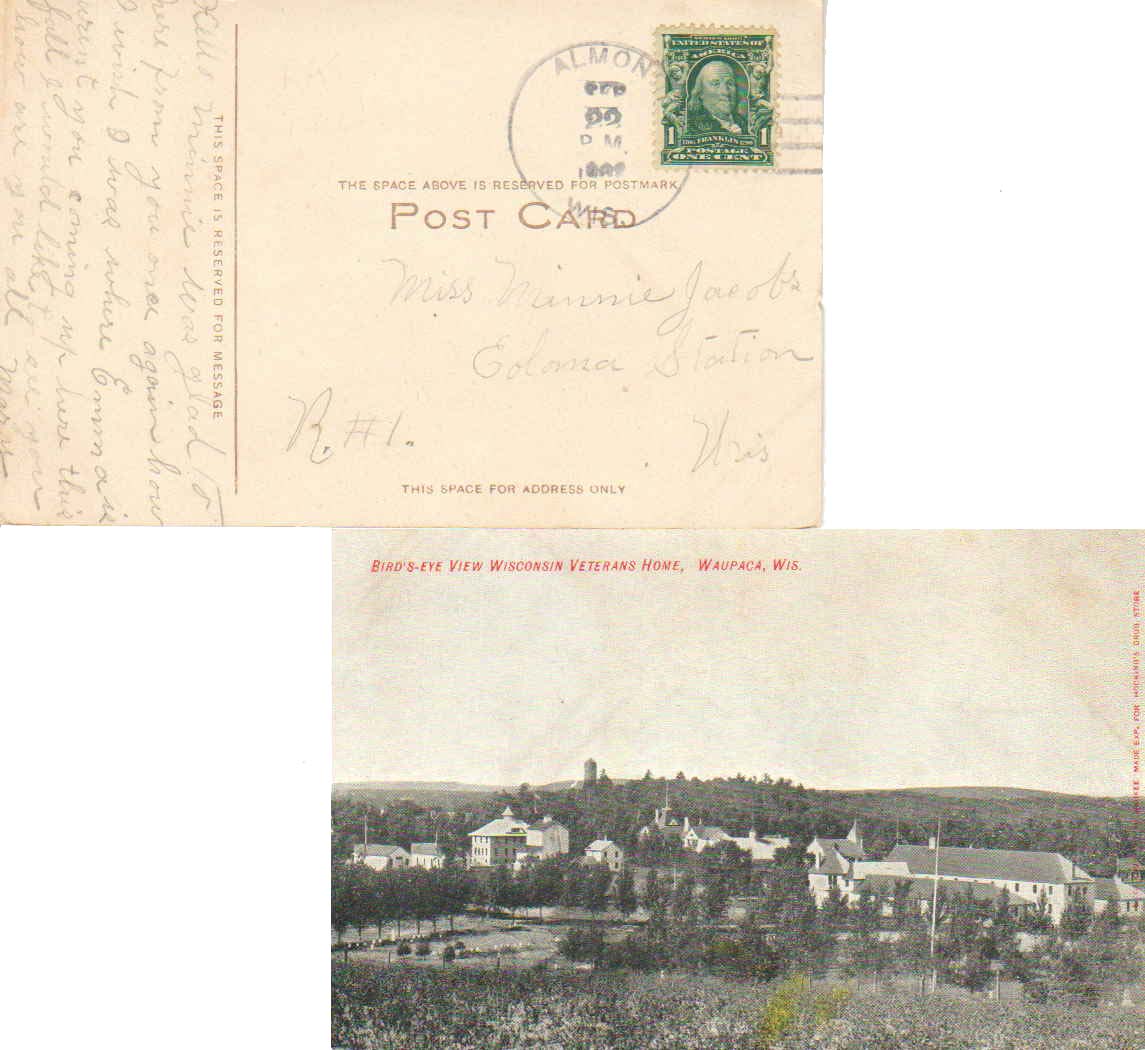 ALMON
SEP
22
P.M.
WIS.
SERIES 1902
UNITED STATES OF
AMERICA
1706 FRANKLIN 1790
1 1
POSTAGE
ONE CENT
THE SPACE ABOVE IS RESERVED FOR POSTMARK.
POST CARD
Miss Minnie Jacobs
Coloma Station
R. #1.
Wis
THIS SPACE FOR ADDRESS ONLY
THIS SPACE IS RESERVED FOR MESSAGE
Hello Minnie was glad to
here from you once again how
I wish I was where Emma is
urent you coming up here this
fall I would like to see you
how are you all Mary
BIRD'S-EYE VIEW WISCONSIN VETERANS HOME, WAUPACA, WIS.
KEE. MADE EXP. FOR HOCKING'S DRUG STORE